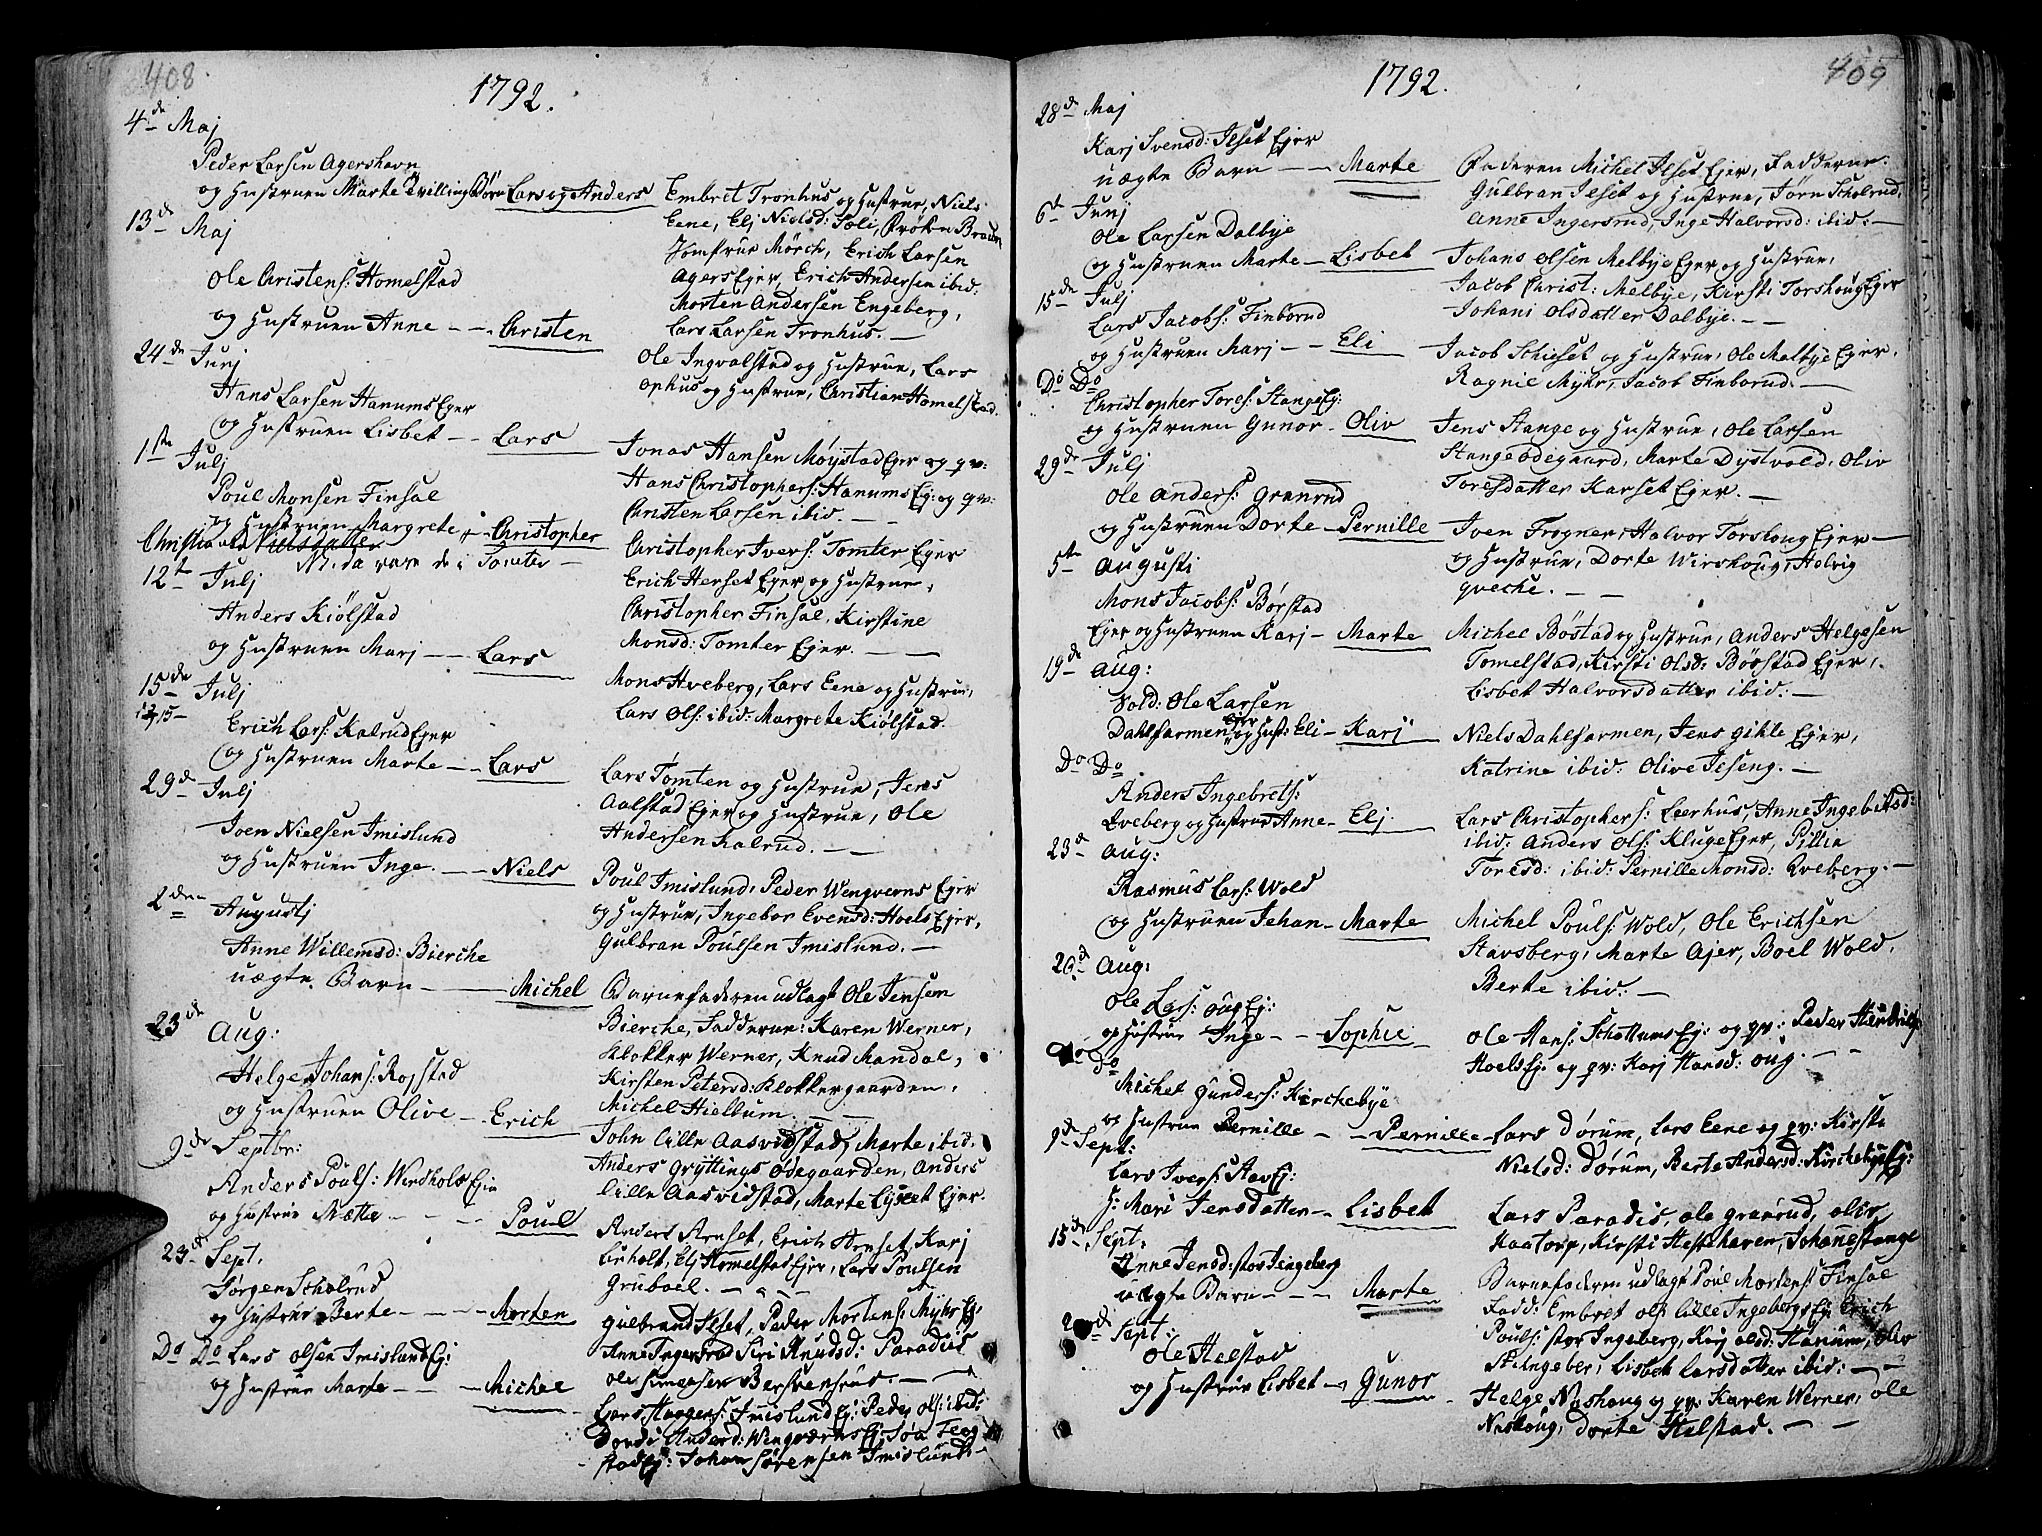 408
1792.
4de Maj
Peder Larsen Agershavn
og Hustruen Marte Tvilling Børn Lars og Anders
Embret Tronhus og Hustrue, Niels
Eene, Elj Nielsd: Soli, Frøken Braun
Jomfrue Mørch, Erich Larsen
Agers Ejer, Erich Andersen ibid:
Morten Andersen Engeberg,
Lars Larsen Tronhus. —
13de Maj
Ole Christens: Homelstad
og Hustruen Anne — — Christen
Ole Ingvalstad og Hustrue, Lars
ophus og Hustrue, Christian Homelstad.
24de Junj
Hans Larsen Hanums Ejer
og Hustruen Lisbet — — Lars
Jonas Hansen Møystad Ejer og qv:
Hans Christophers: Hanums Ej: og qv:
Christen Larsen ibid. — —
1ste Julj
Poul Monsen Finsal
og Hustruen Margrete — Christopher
Nielsdatter
Christopher Ivers: Tomter Ejer
Erich Herset Ejer og Hustrue,
Christopher Finsal, Kirstine
Monsd: Tomter Ejer. — —
12t Julj
Anders Kiølstad
og Hustruen Marj — — Lars
Mons Hveberg, Lars Eene og Hustrue,
Lars Ols: ibid: Margrete Kiølstad.
15de Julj
Erich Lars: Kalrud Ejer
og Hustruen Marte — — Lars
Lars Tomten og Hustrue, Jens
Aalstad Ejer og Hustrue, Ole
Andersen Kalrud. — —
29de Julj
Joen Nielsen Imislund
og Hustruen Inge. — — Niels
Poul Imislund, Peder Wengverns Ejer
og Hustrue, Ingebor Evensd: Hoels Ejer,
Gulbran Poulsen Imislund. —
2den Augustj
Anne Willemsd: Bierche
uægte Barn — — Michel
Barnefaderen udlagt Ole Jensen
Bierche, Fadderne: Karen Werner,
Klokker Werner, Knud Mandal,
Kirsten Petersd: Klokkergaarden,
Michel Hiellum. — —
23de Aug:
Helge Johans: Rogstad
og Hustruen Olive — Erich
John Lille Aasvidstad, Marte ibid.
Anders Gryttings Ødegaarden, Anders
Lille Aasvidstad, Marte Lyset Ejer.
9de Septbr:
Anders Pouls: Windhols Ejer
og Hustrue Mette — — — Poul
Anders Arnset, Erich Arnset, Karj
Lirholt, Elj Homelstad Ejer, Lars Poulsen
Gruboel. — — —
23de Sept.
Jørgen Scholrud
og Hustrue Berte — — — Morten
Gulbrand Ilset, Peder Mortens: Myhr Ej:
Anne Ingersrud Siri Knudsd: Paradis
Ole Simensen Berstenhus. — —
Do Do Lars Olsen Imislund Ej:
og Hustrue Marte — — — Michel
Lars Haagens: Imislund Ej: Peder Ols: ibid:
Dordi Andersd: Wengværns Ej: Søn
stad Ej: Johan Sørensen Imislund —
409
1792.
28de Maj
Karj Svensd: Ilset Ejer
uægte Barn — — Marte
Faderen Michel Ilset Ejer, Fadderne.
Gulbran Ilset og Hustrue, Jørn Scholrud,
Anne Ingersrud, Inge Halvorsd: ibid: —
6te Junj
Ole Larsen Dalbye
og Hustruen Marte — Lisbet
Johans Olsen Melbye Ejer og Hustrue,
Jacob Christ: Melbye, Kirsti Torshoug Ejer
Johani Olsdatter Dalbye. — —
15de Julj
Lars Jacobs: Finborud
og Hustruen Marj — — Eli
Jacob Schieset og Hustrue, Ole Melbye Ejer,
Ragnil Myhr, Jacob Finborud. —
Do Do
Christopher Tores: Stange Ej:
og Hustruen Gunor — Oliv
Jens Stange og Hustrue, Ole Larsen
Stange ødegaard, Marte Dystvold, Oliv
Toresdatter Karset Ejer. —
29de Julj
Ole Anders: Granrud
og Hustruen Dorte — Pernille
Iven Frogner, Halvor Torshoug Ejer —
og Hustrue, Dorte Wirshoug, Helvig
Qveche. — —
5te Augusti
Mons Jacobs: Børstad
Ejer og Hustruen Karj — Marte
Michel Bøstad og Hustrue, Anders Helgesen
Tomelstad, Kirsti Olsd: Børstad Ejer,
Lisbet Halvorsdatter ibid: —
19de Aug:
Sold: Ole Larsen
Dahlfarmen ejer og Hust: Eli — Karj
Niels Dahlfarmen, Jens Gihle Ejer,
Katrine ibid: Olive Ilseng. —
Do Do
Anders Ingebrets:
Qveberg og Hustrue Anne — Elj
Lars Christophers: Leerhus, Anne Ingebrtsd:
ibid: Anders Ols: Kluge Ejer, Pillia
Toresd: ibid: Pernille Monsd: Qveberg. —
23de Aug:
Rasmus Lars: Wold
og Hustruen Jehan — Marte
Michel Pouls: Wold, Ole Erichsen
Stavsberg, Marte Ajer, Boel Wold,
Berte ibid: —
26de Aug:
Ole Lars: Oug Ej:
og Hustrue Inge — — Sophie
Ole Hans: Schattums Ej: og qv: Peder
Hoels Ej: og qv: Karj Hansd: Oug. — —
Do Do
Michel Gunders: Kirchebye
og Hustrue Pernille — — Pernille
Lars Dørum, Lars Eene og qv: Kirsti
Nielsd: Dørum, Berte Andersd: Kirchebye Ej:
9de Sept:
Lars Ivers: Aas Ej:
H: Mari Jensdatter — Lisbet
Lars Paradis, Ole Granrud, Oliv
Kaatorp, Kirsti Hestehaven, Johane Stange
15de Sept:
Anne Jensd: stor Ingeberg
uægte Barn — — Marte
Barnefaderen udlagt Poul Mortens: Finsal
Fadd: Embret Ols: Lille Ingebergs Ej: Erich
Pouls: stor Ingeberg, Karj Olsd: Hanum, Oliv
St: Ingeber, Lisbet Larsdatter ibid: — —
Sept:
Ole Helstad
og Hustrue Lisbet — Gunor
Helge Nashoug og qv: Karen Werner, Ole
Nashoug, Dorte Helstad. — —